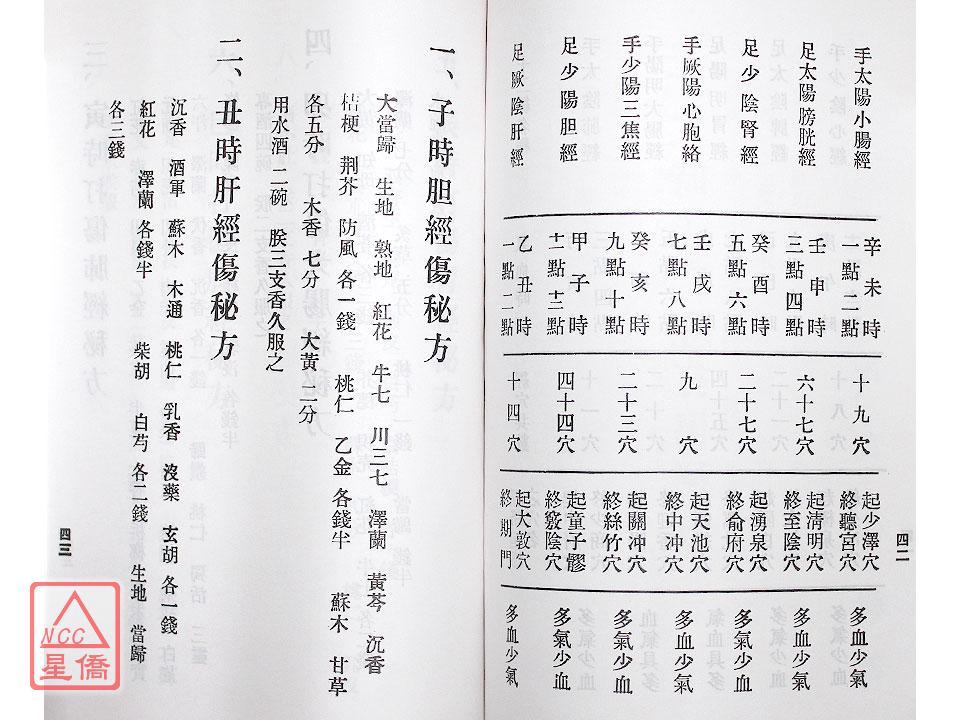 手太陽小腸經　辛未時　一點二點　十九穴　起少澤穴　終聽宮穴　多血少氣
足太陽膀胱經　壬申時　三點四點　六十七穴　起清明穴　終至陰穴　多血少氣
足少陰腎經　癸酉時　五點六點　二十七穴　起湧泉穴　終俞府穴　多氣少血
手厥陽心胞絡　壬戌時　七點八點　九穴　起天池穴　終中冲穴　多血少氣
手少陽三焦經　癸亥時　九點十點　二十三穴　起關冲穴　終絲竹穴　多氣少血
足少陽胆經　甲子時　十一十二點　四十四穴　起童子髎　終竅陰穴　多氣少血
足厥陰肝經　乙丑時　一點二點　十四穴　起大敦穴　終期門　多血少氣
四二
一、子時胆經傷秘方
大當歸　生地　熟地　紅花　牛七　川三七　澤蘭　黃芩　沉香
桔梗　荆芥　防風各一錢　桃仁　乙金各錢半　蘇木　甘草
各五分　木香七分　大黃二分
用水酒二碗　朕三支香久服之
二、丑時肝經傷秘方
沉香　酒軍　蘇木　木通　桃仁　乳香　沒藥　玄胡各一錢
紅花　澤蘭各錢半　柴胡　白芍各二錢　生地　當歸
各三錢
四三
NCC
星僑